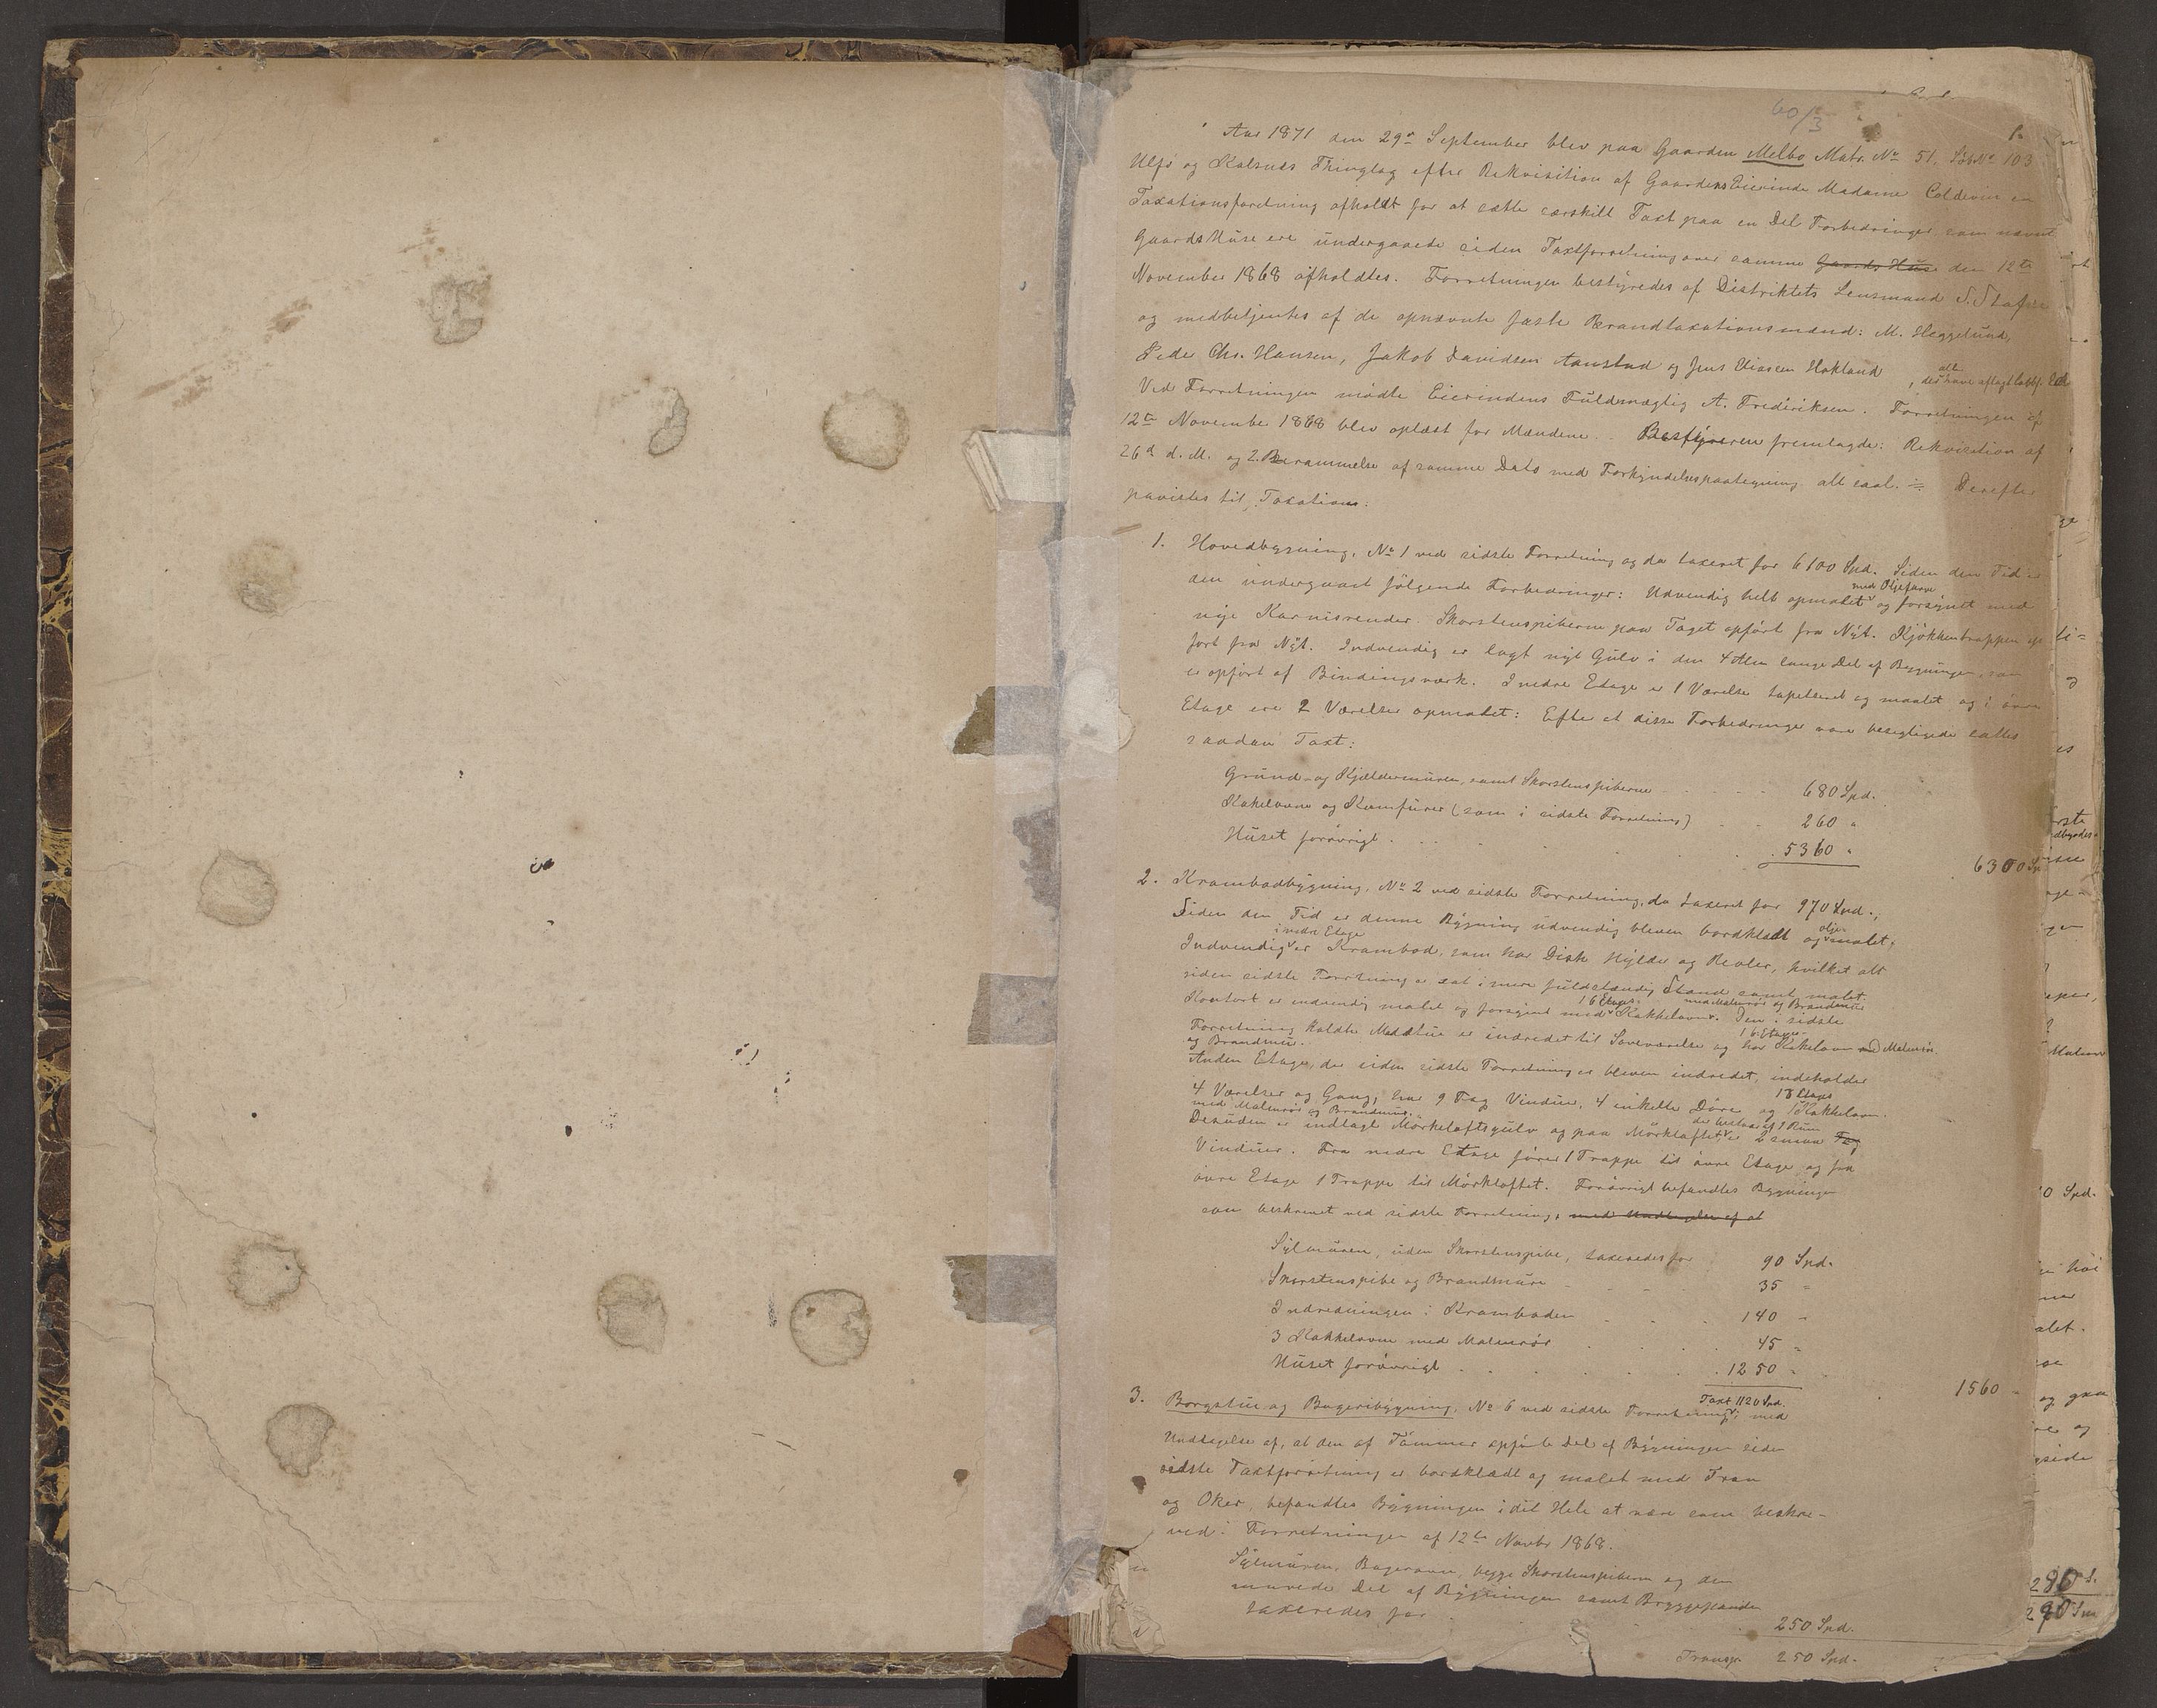 60/3
1.
Aar 1871 den 29de September blev paa Gaarden Melbo Matr. No 51. Løbe No 103
Ulfs og Kalsnes Thinglag efter Rekvisition af Gaardens Eierinde Madame Coldevin en
Taxationsforretning afholdt for at sætte særskilt Taxt paa en Del Forbedringer som nævnt
Gaards Huse ere undergaaede siden Taxtforretning over samme Gaards Huse den 12te
November 1868 afholdtes. Forretningen bestyredes af Distriktets Lensmand S.
og medbetjentes af de opnævnte faste Brandtaxationsmænd: M. Heggelund,
Peder Chr. Hansen, Jakob Davidsen Aanstad og Jens Hokland
alle
, der have aflagt
Ved Forretningen mødte Eierindens Fuldmægtig A. Frederiksen. Forretningen af
12te November 1868 blev oplæst for Mændene. Bestyreren fremlagde: Rekvisition af
26de d. M. og 2. Berammelse af samme Dato med Forkyndelsespaategning alt saal. Derefter
paavistes til Taxation:
1. Hovedbygning, No 1 ved sidste Forretning og da taxeret for 6100 Spd. Siden den Tid er
med Oljefarve
den undergaaet følgende Forbedringer: Udvendig helt opmalet og forsynet med
nye Karnisrender. Skorstenspiberne paa Taget opført fra Nyt. Kjøkkentrappen op
ført fra Nyt. Indvendig er lagt nyt Gulv i den 4 Alen lange Del af Bygningen, som
er opført af Bindingsværk. I nedre Etage er 1 Værelse tapetseret og maalet og i øvre
Etage ere 2 Værelser opmalet: Efter at disse Forbedringer vare besigtigede sattes
saadan Taxt:
Grund- og Kjældermuren, samt Skorstenspiberne 680 Spd.
Kakelovne og Komfurer (som i sidste Forretning) 260 "
Huset forøvrigt 5360 "
6300 Spd
2. Krambodbygning, No 2 ved sidste Forretning, da taxeret for 970 Spd.,
Siden den Tid er denne Bygning udvendig bleven bordklædt og olje-malet.
i nedre Etage
Indvendig er Krambod, som har Disk Hylder og Reoler, hvilket alt
siden sidste Forretning er sat i mere fuldstændig Stand samt malet.
1 6 Etages med Malmrør og Brandmur
Kontort er indvendig malet og forsynet med Kakkelovn. Den i sidste
1 6 Etages
Forretning kaldte Madstue er indredet til Soveværelse og har Kakelovn med Malmrør
og Brandmur.
Anden Etage, der siden sidste Forretning er bleven indredet, indeholder
1 3 Etages
4 Værelser og Gang, har 9 Fag Vinduer, 4 enkelte Døre og 1 Kakkelovn.
med Malmrør og Brandmur.
der bestaar af 1 Rum
Desuden er indlagt Mørkeloftsgulv og paa Mørkloftet er 2 smaa Fag
Vinduer. Fra nedre Etage fører 1 Trappe til øvre Etage og fra
øvre Etage 1 Trappe til Mørkloftet. Forøvrigt befandtes Bygningen
som beskrevet ved sidste Forretning, med Undtagelse af at
Sylmuren, uden Skorstenspibe, taxeredes for 90 Spd.
Skorstenspibe og Brandmure 35 "
Indredningen i Kramboden 140 "
3 Kakkelovne med Malmrør 45 "
Huset forøvrigt 1250 "
1560 "
Taxt 1120 Spd.
3. Borgstue og Bageribygning, No 6 ved sidste Forretning, med
Undtagelse af, at den af Tømmer opførte Del af Bygningen siden
sidste Taxtforretning er bordklædt og malet med Tran
og Oker, befandtes Bygningen i det Hele at være som beskre-
ved i Forretningen af 12te Novbr 1868.
Sylmuren, Bagerovn, begge Skorstenspiberne og den
murede Del af Bygningen samt Bryggepanden
taxeredes for 250 Spd.
Transp 250 Spd.